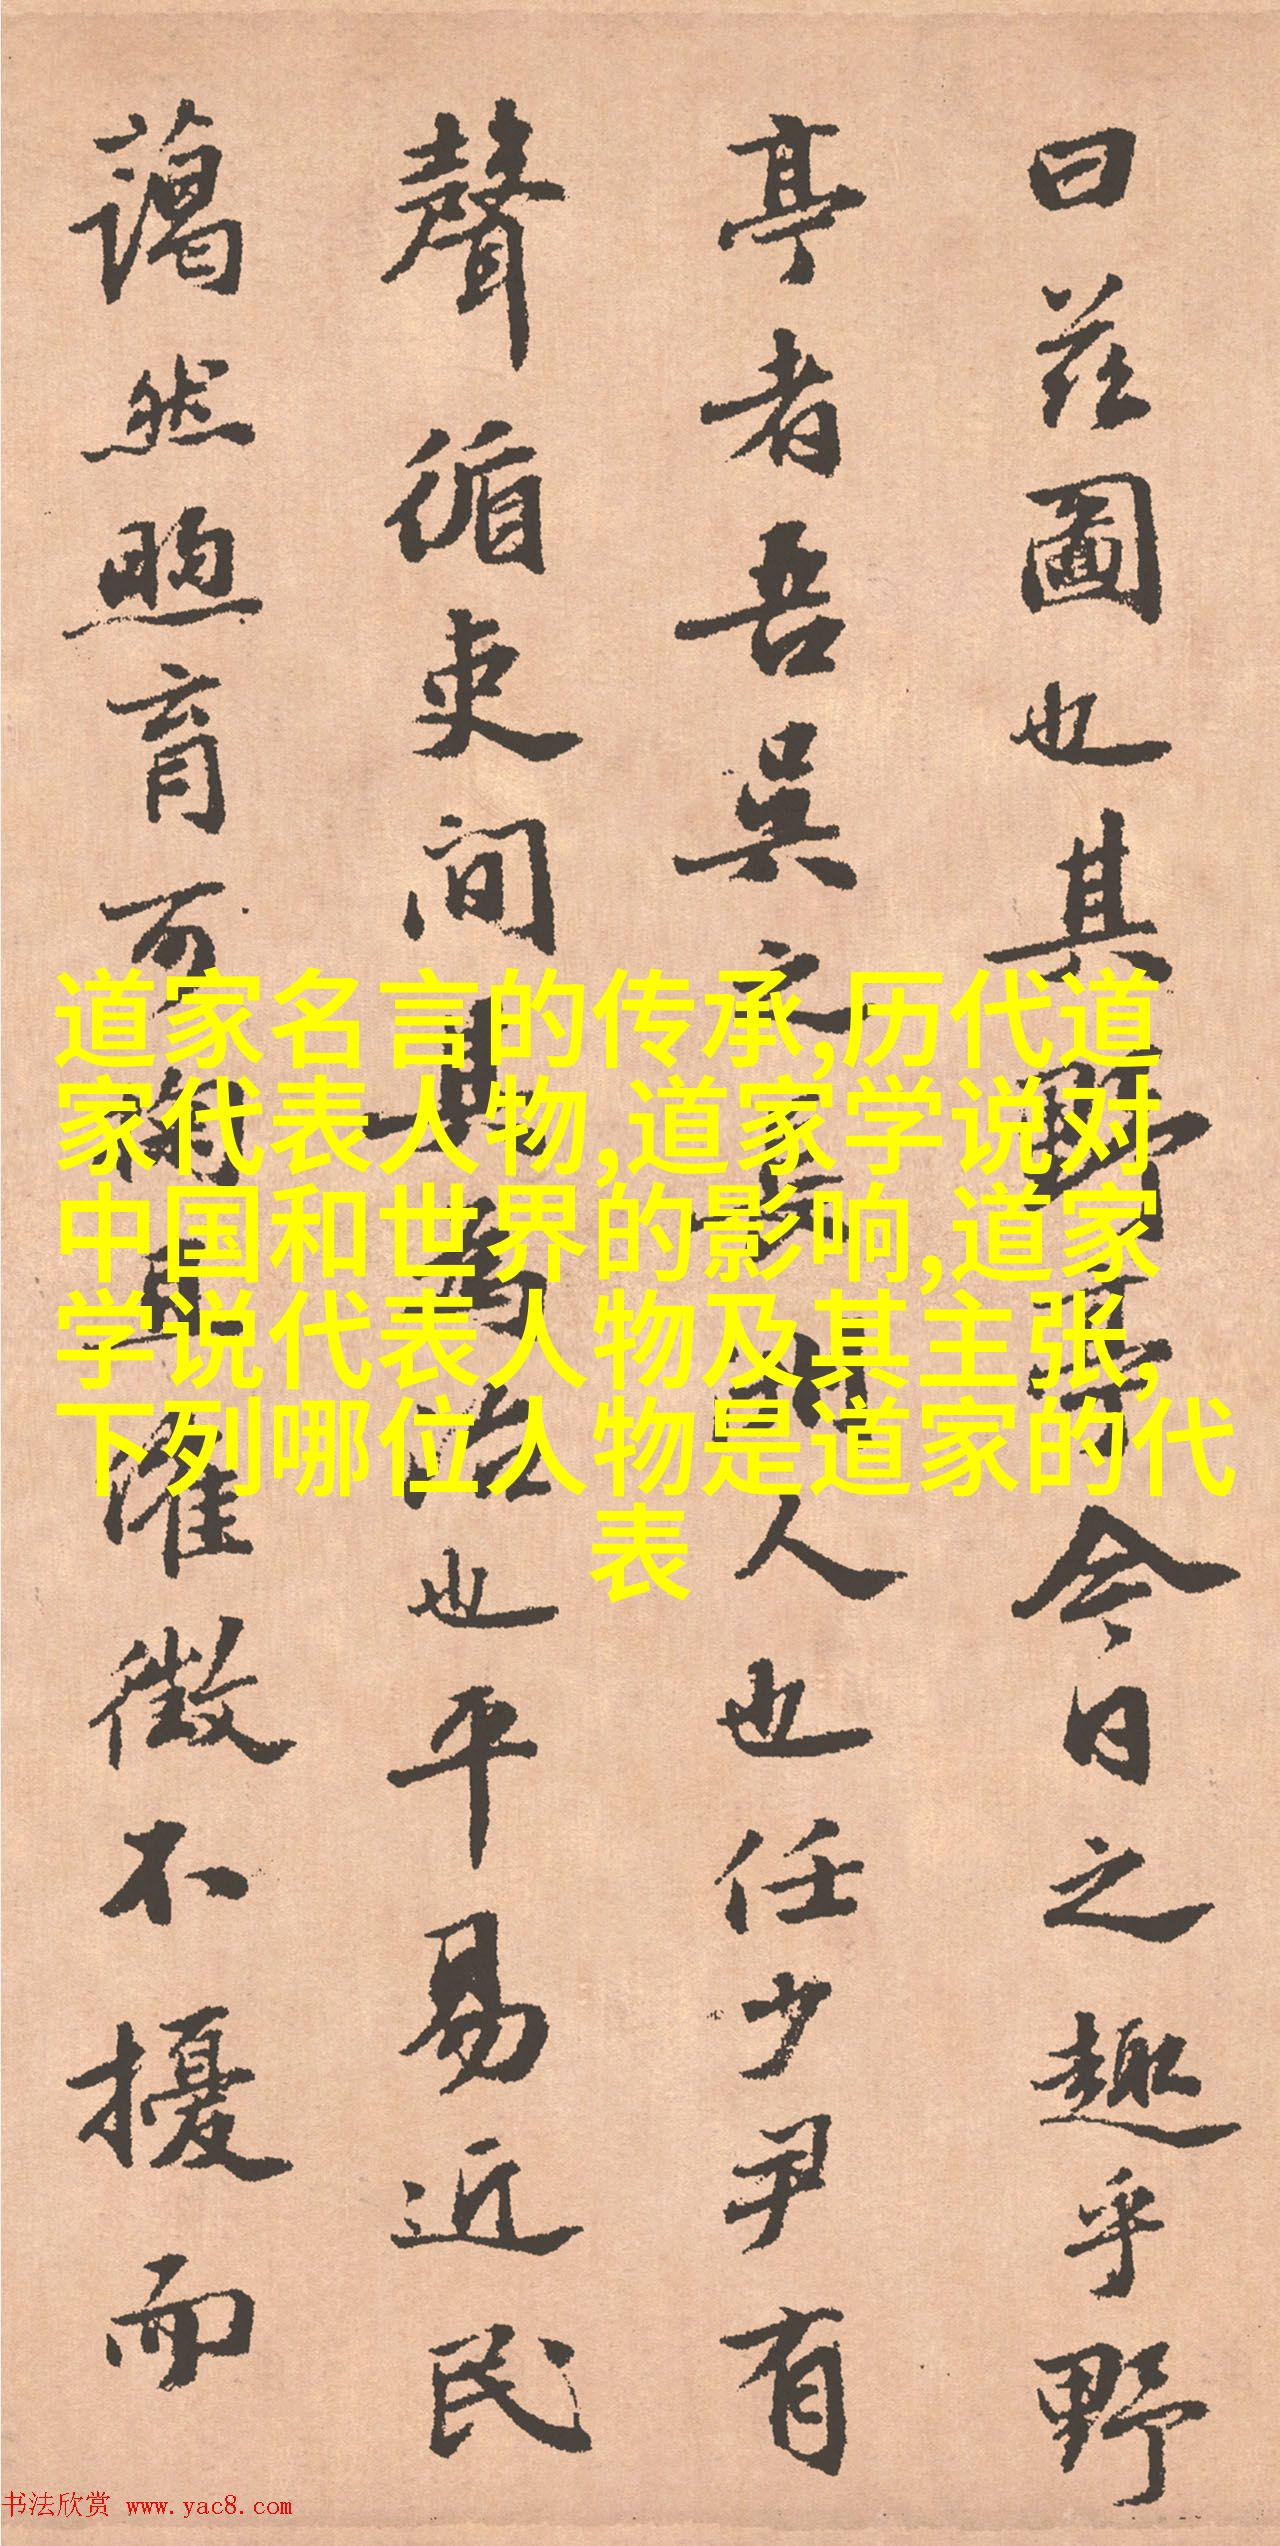 曰茲圖也其野亭今日之趣乎野
亭者吾吳之人也任少尹有
聲循吏间其為治也平易近民
藹然煦育可催徵不擾而
道家名言的传承,历代道
家代表人物,道家学说对
中国和世界的影响,道家
学说代表人物及其主张,
下列哪位人物是道家的代
表
书法欣赏 www.yac8.com